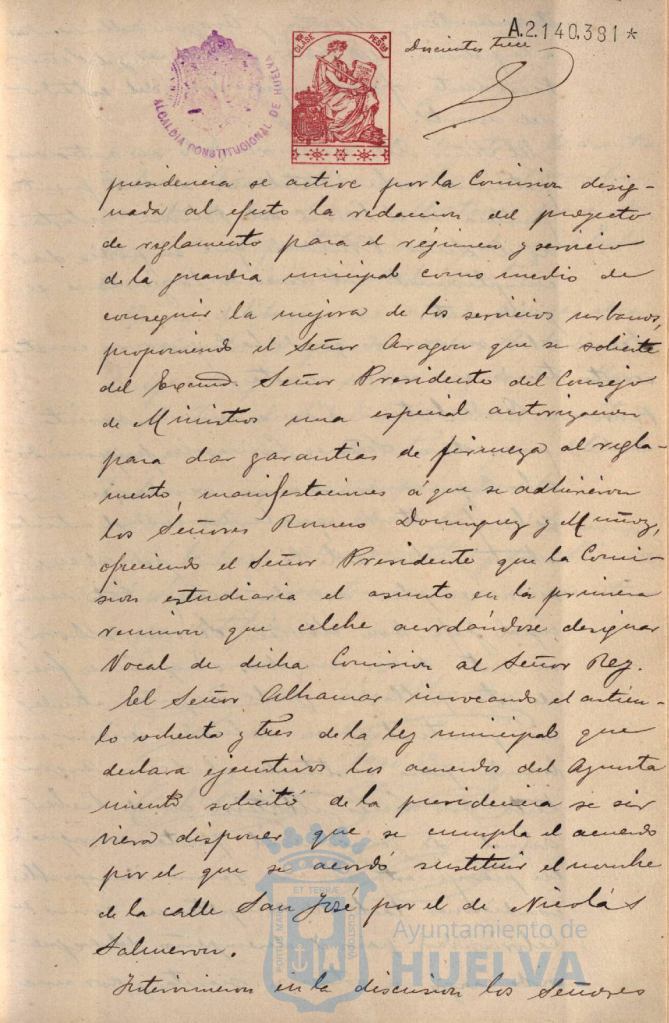 A.2.140.381 *
Doscientos trece
ALCALDIA CONSTITUCIONAL DE HUELVA
CLASE PESETA
presidencia se active por la Comision desig-
nada al efecto la redaccion del proyecto
de reglamento para el régimen y servicio
de la guardia municipal como medio de
conseguir la mejora de los servicios urbanos,
proponiendo el Señor Aragon que se solicite
del Excmo. Señor Presidente del Consejo
de Ministros una especial autorizacion
para dar garantias de firmeza al regla-
mento, manifestaciones á que se adhirieron
los Señores Romero Dominguez y Muñoz,
ofreciendo el Señor Presidente que la Comi-
sion estudiaria el asunto en la primera
reunion que celebre acordándose designar
Vocal de dicha Comision al Señor Rey.
El Señor Alhamar invocando el artícu-
lo ochenta y tres de la ley municipal que
declara ejecutivos los acuerdos del Ayunta
miento solicitó de la presidencia se sir
viera disponer que se cumpla el acuerdo
por el que se acordó sustituir el nombre
de la calle San José por el de Nicolás
Salmeron.
Intervinieron en la discusion los Señores
PORTUS MARIS ET TERRAE CUSTODIA
Ayuntamiento de
HUELVA